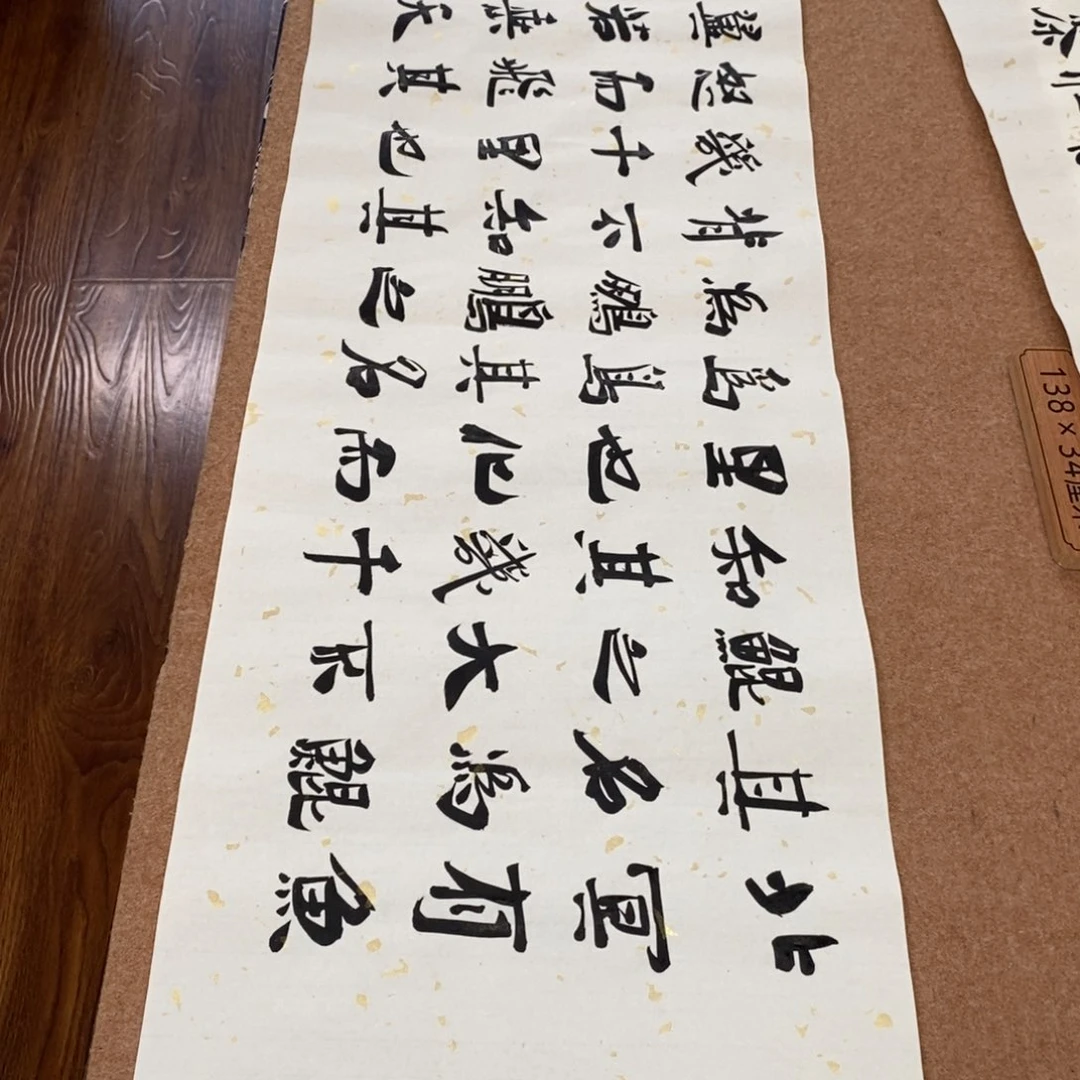 北冥有魚
其名為鯤
鯤之大不
知其幾千
里也化而
為鳥其名
為鵬鵬之
背不知其
幾千里也
怒而飛其
翼若垂天
138×34厘米